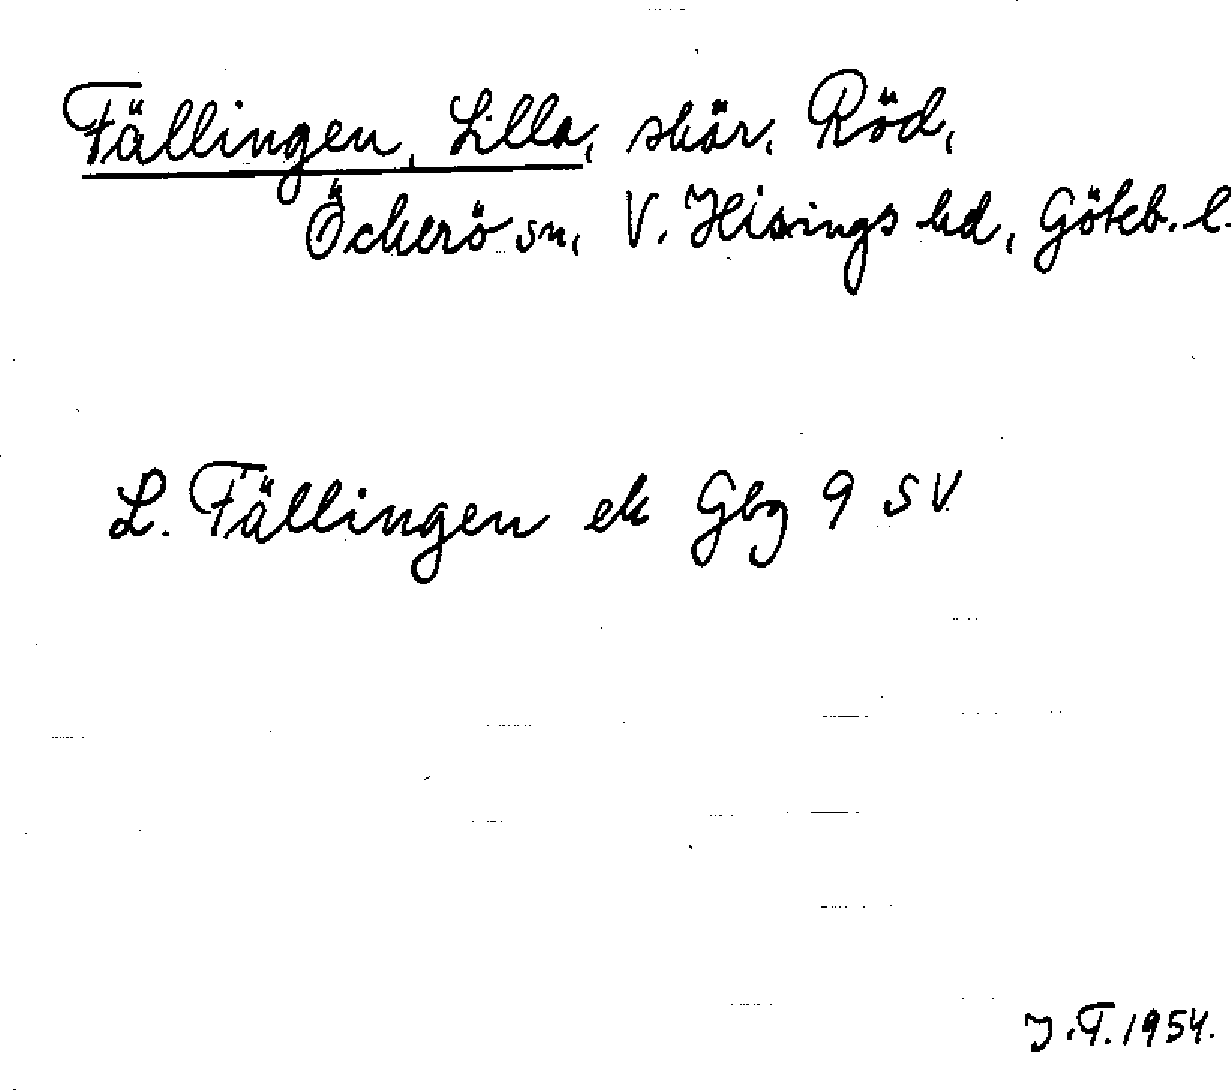 Fällingen, Lilla, skär, Röd,
Öckerö sn, V. Hisings hd, Göteb. l.
L. Fällingen ek Gbg 9 SV
J.T. 1954.